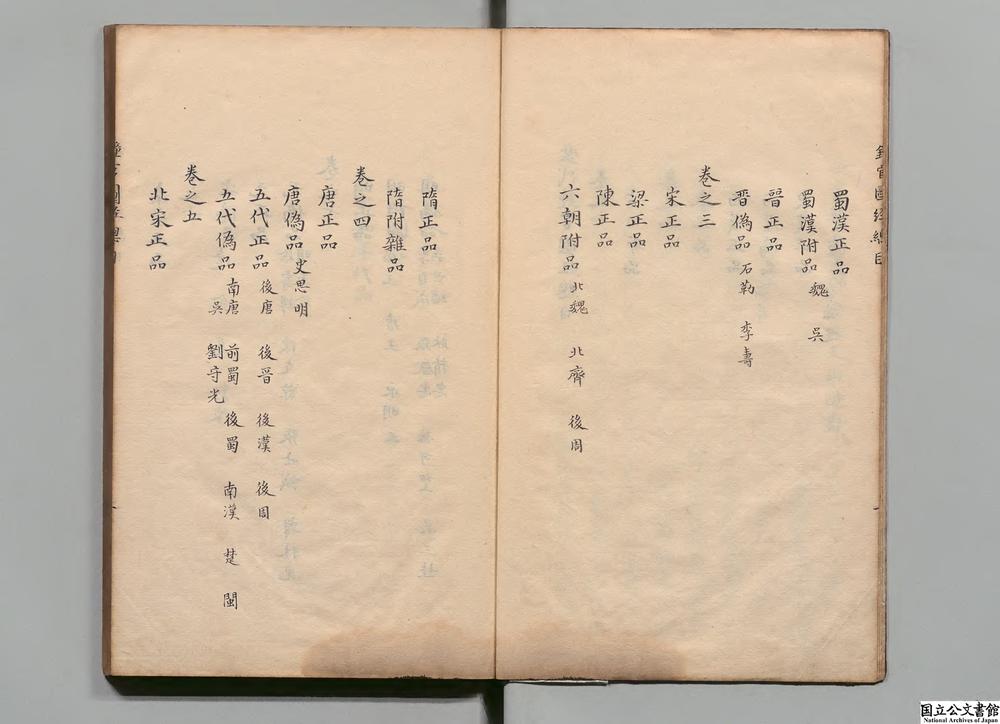 蜀漢正品
蜀漢附品 魏 吳
晉正品
晉僞品 石勒 李壽
卷之三
宋正品
梁正品
陳正品
六朝附品 北魏 北齊 後周
隋正品
隋附雜品
卷之四
唐正品
唐僞品 史思明
五代正品 後唐 後晉 後漢 後周
五代僞品 南唐 前蜀 後蜀 南漢 楚 閩
吳 劉守光
卷之五
北宋正品
国立公文書館
National Archives of Japan